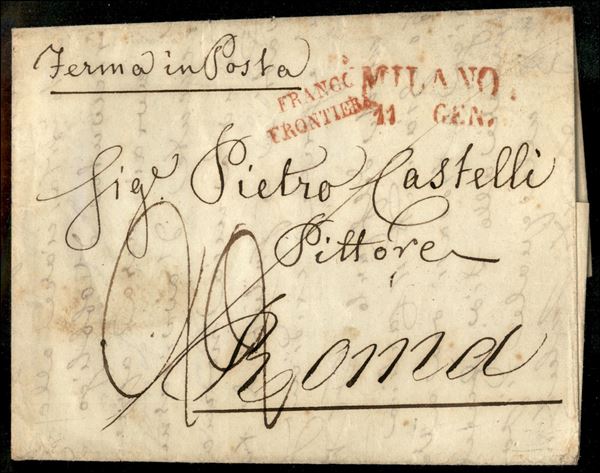 Ferma in Posta
FRANCO
FRONTIERA
MILANO.
11 GEN.
Sigr Pietro Castelli
Pittore
Roma